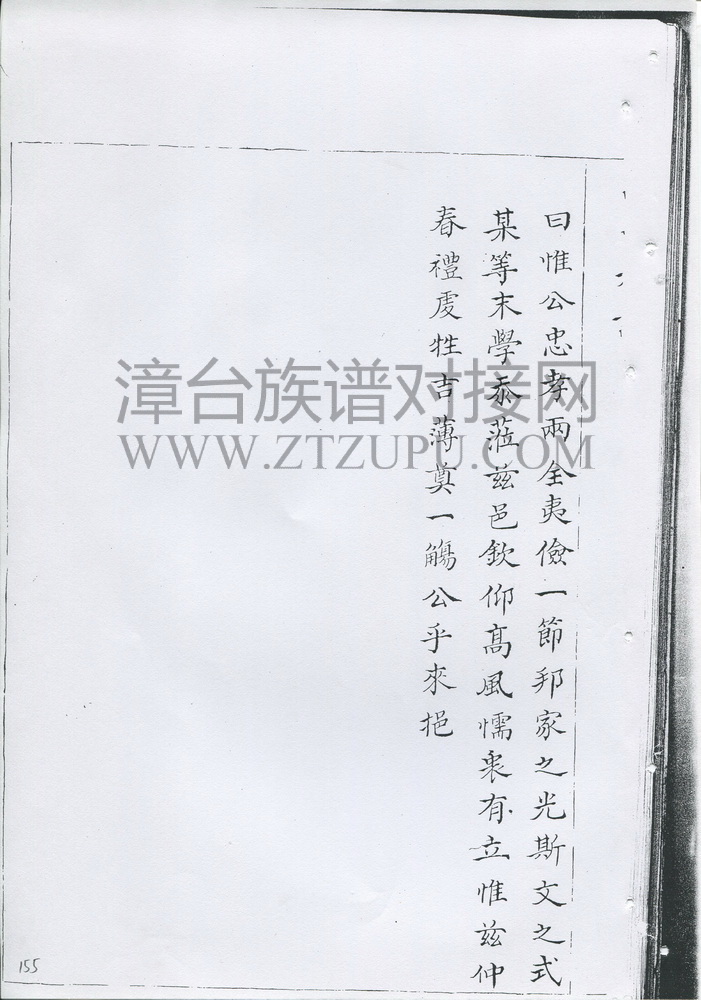 曰惟公忠孝兩全夷儉一節邦家之光斯文之式
某等末學忝蒞兹邑欽仰高風懦衷有立惟兹仲
春禮虔牲吉薄奠一觴公乎來挹
漳台族谱对接网
WWW.ZTZUPU.COM
155